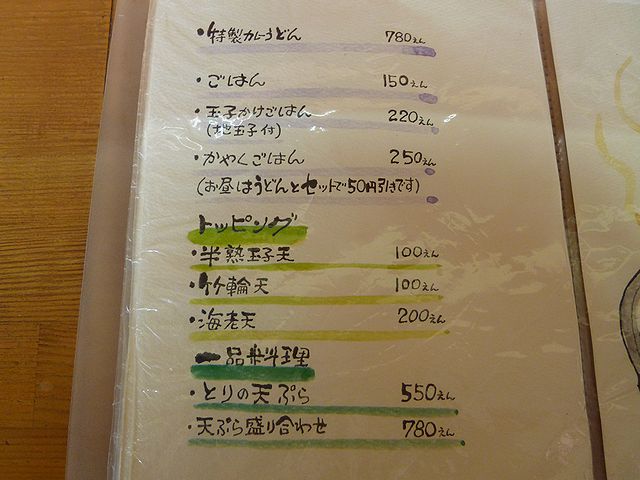 ・特製カレーうどん 780えん
・ごはん 150えん
・玉子かけごはん 220えん
(地玉子付)
・かやくごはん 250えん
(お昼はうどんとセットで50円引きです)
トッピング
・半熟玉子天 100えん
・竹輪天 100えん
・海老天 200えん
一品料理
・とりの天ぷら 550えん
・天ぷら盛り合わせ 780えん